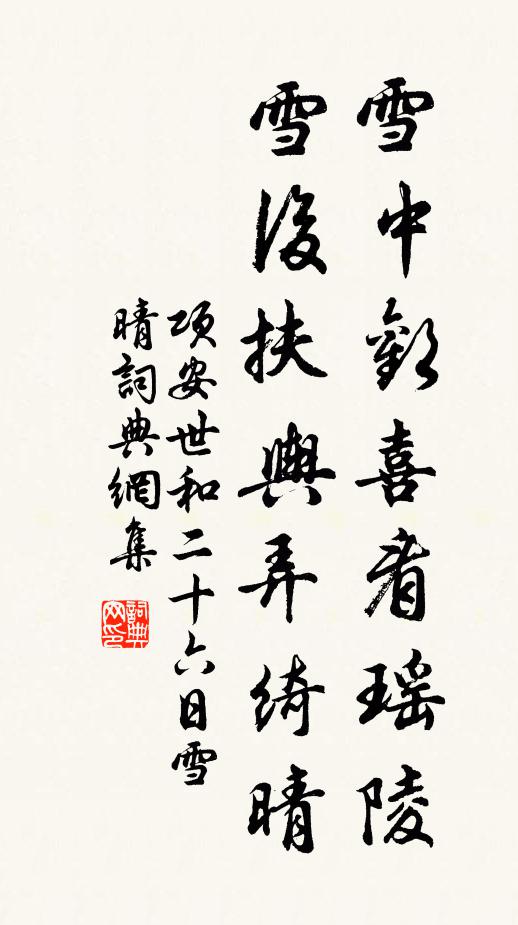 雪中歡喜看瑶陵
雪後扶輿弄綺晴
項安世和二十六日雪
晴詞典網集
詞典网印